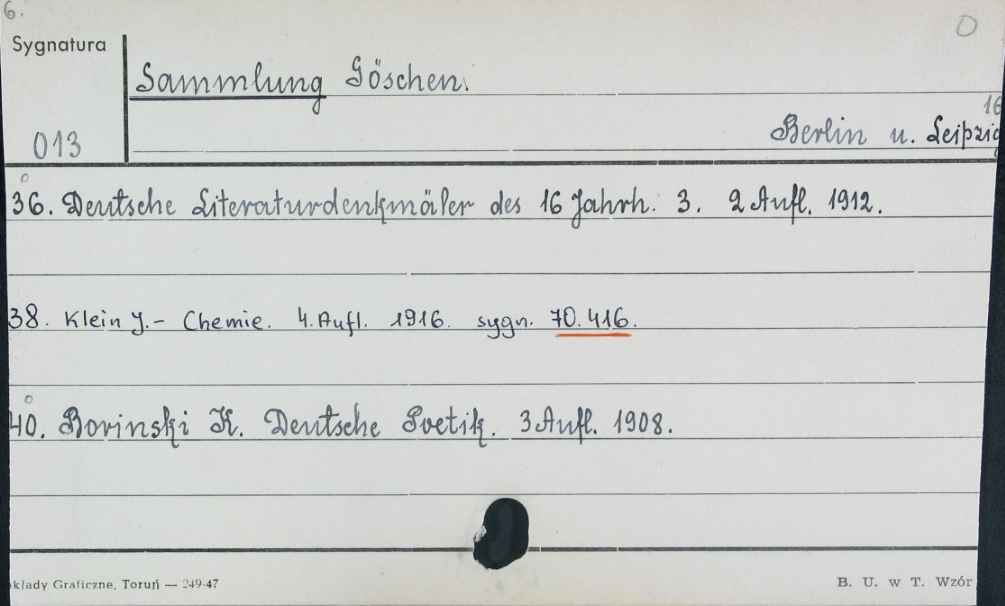 6.
O
Sygnatura
Sammlung Göschen.
16
013
Berlin u. Leipzig
36. Deutsche Literaturdenkmäler des 16 Jahrh. 3. 2 Aufl. 1912.
38. Klein J.- Chemie. 4. Aufl. 1916. sygn. 70.416.
40. Borinski K. Deutsche Poetik. 3 Aufl. 1908.
kłady Graficzne, Toruń — 249-47
B. U. w T. Wzór